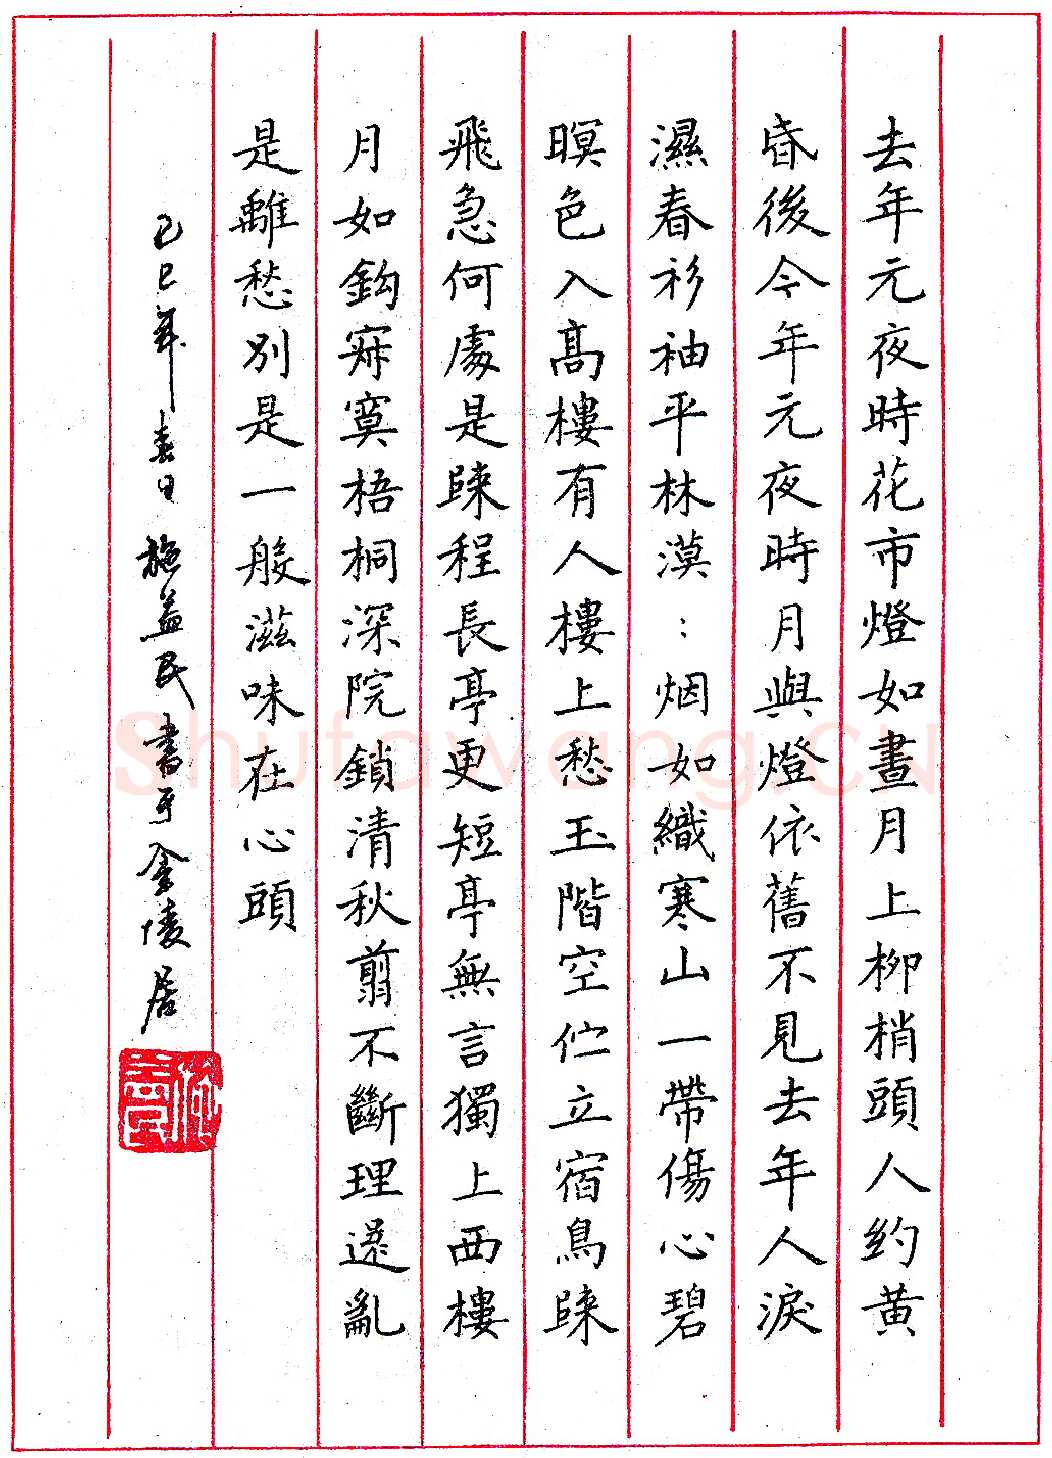 去年元夜時花市燈如晝月上柳梢頭人約黄
昏後今年元夜時月與燈依舊不見去年人淚
濕春衫袖平林漠：烟如織寒山一帶傷心碧
暝色入髙樓有人樓上愁玉階空伫立宿鳥歸
飛急何處是歸程長亭更短亭無言獨上西樓
月如鈎寂寞梧桐深院鎖清秋翦不斷理還亂
是離愁别是一般滋味在心頭
己巳年春日施益民書于金陵居
Shufawang.CN